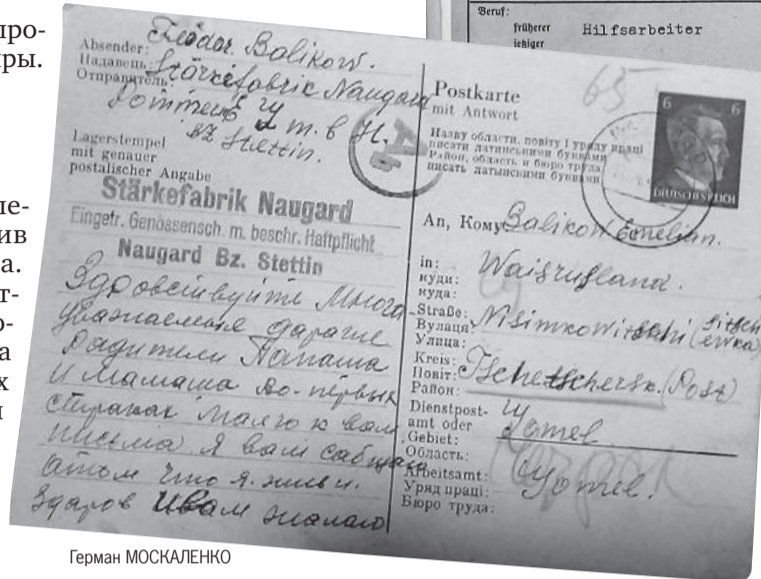 про-
ры.
ле-
ив
а.
т-
о-
а
х
и
Beruf:
früherer
jetziger
Hilfsarbeiter
Absender: Feodor. Balikow.
Надавець:
Отправитель: Stärkefabrik Naugard
Pommern G. m. b H.
Bz Stettin.
Lagerstempel
mit genauer
postalischer Angabe
Stärkefabrik Naugard
Eingetr. Genossensch. m. beschr. Haftpflicht
Naugard Bz. Stettin
Здровствуйте Многа
уважаемые дарагие
радители Папаша
и Мамаша во-первых
стираках маяго к вам
письма Я вам сабщаю
атом что я жыв и
здаров И вам жалаю
65
Postkarte
mit Antwort
Назву области, повіту і уряду праці
писати латинськими буквами
Район, область и бюро труда
писать латынскими буквами
6 6
DEUTSCHES REICH
An, Кому Balikow Emelian.
in:
куди:
куда:
Waisrußland.
Straße:
Вулиця:
Улица:
Kreis:
Повіт:
Район:
Tschetschersk. (Post)
Dienstpost-
amt oder
Gebiet:
Область:
Gomel.
Arbeitsamt:
Уряд праці:
Бюро труда:
Gomel.
Герман МОСКАЛЕНКО